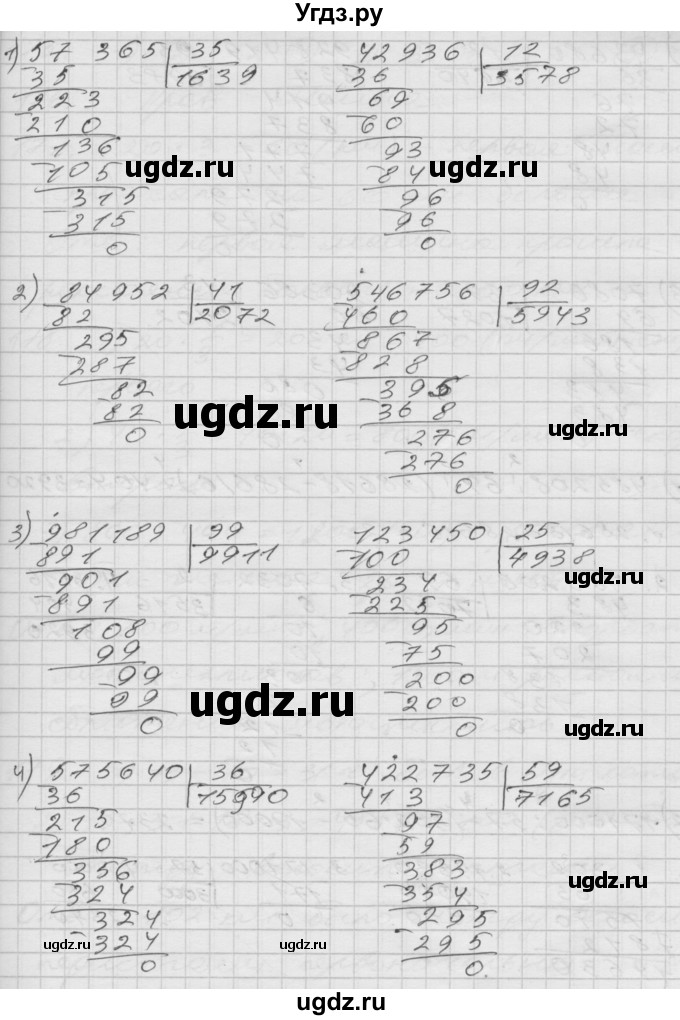 Угдз.ру
1) 57 365 | 35
35 | 1639
223
210
136
105
315
315
0
42936 | 12
36 | 3578
69
60
93
84
96
96
0
ugdz.ru
ugdz.ru
2) 84952 | 41
82 | 2072
295
287
82
82
0
546756 | 92
460 | 5943
867
828
395
368
276
276
0
ugdz.ru
ugdz.ru
3) 981189 | 99
891 | 9911
901
891
108
99
99
99
0
123450 | 25
100 | 4938
234
225
95
75
200
200
0
ugdz.ru
ugdz.ru
ugdz.ru
4) 575640 | 36
36 | 15990
215
180
356
324
324
324
0
422735 | 59
413 | 7165
97
59
383
354
295
295
0.
ugdz.ru
ugdz.ru
ugdz.ru
ugdz.ru